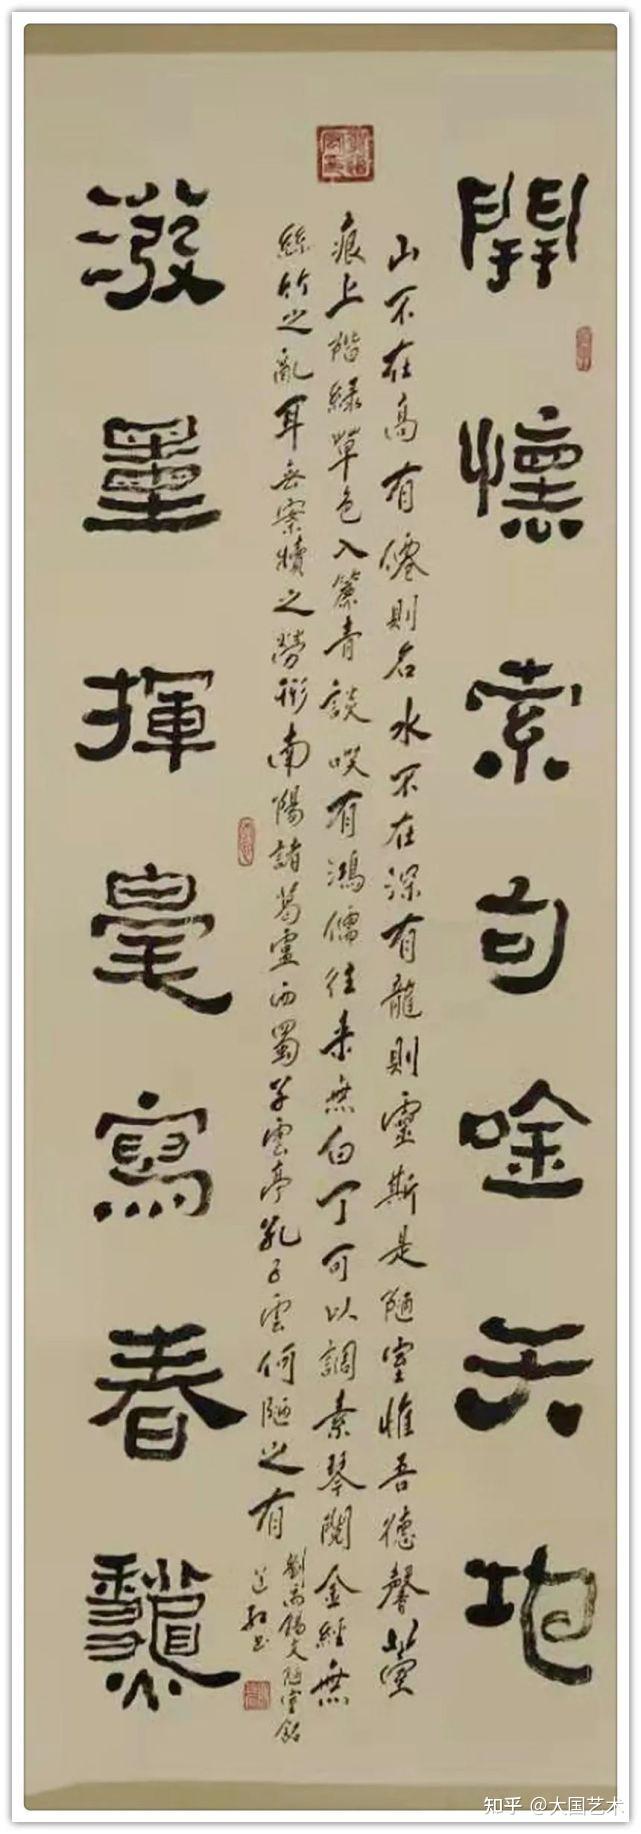 開懷索句唫天地
山不在高有僊則名水不在深有龍則靈斯是陋室惟吾德馨
痕上階緑草色入簾青談咲有鴻儒往来無白丁可以調素琴閲金經無
絲竹之亂耳無案牘之勞形南陽諸葛廬西蜀子雲亭孔子云何陋之有
劉禹錫文陋室銘
潑墨揮毫寫春
知乎 @大国艺术